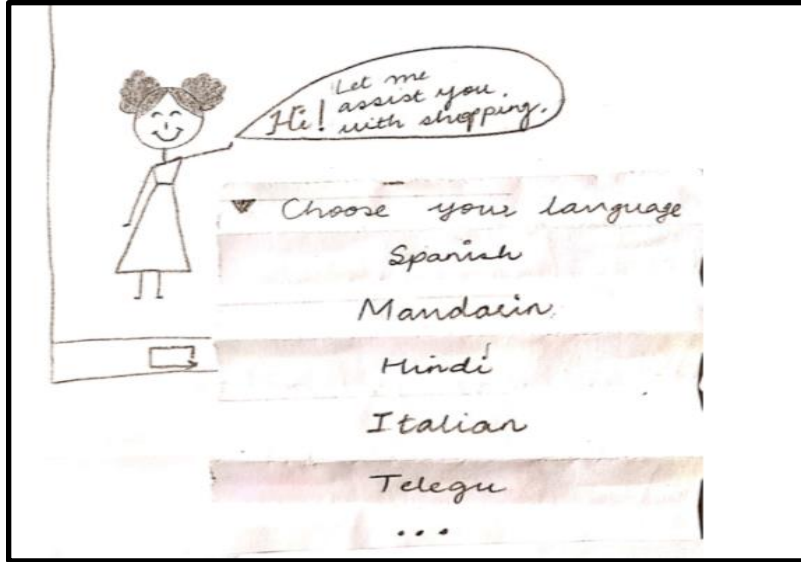 Hi! Let me
assist you.
with shopping.
Choose your language
Spanish
Mandarin
Hindi
Italian
Telegu
...